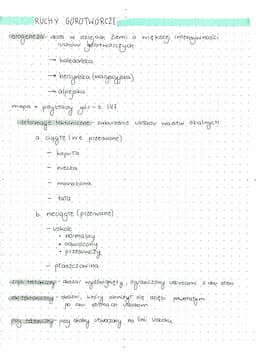 RUCHY GÓROTWÓRCZE
orogeneza - okres w dziejach Ziemi o większej intensywności
ruchów górotwórczych
→ kaledońska
→ hercyńska
→ alpejska
mapa + przykłady gór - s. 147
deformacje tektoniczne - zaburzenie układu warstw skalnych
a. ciągłe (nie przerwane)
- kopuła
- niecka
- monoklina
- fałd
b. nieciągłe (przerwane)
- uskok
• normalny
• odwrócony
• przesuwczy
- płaszczowina
zrąb tektoniczny - obszar wydźwignięty, ograniczony uskokami z obu stron
rów tektoniczny - obszar, który obniżył się dzięki powstałym
po obu stronach uskokom
próg tektoniczny - próg skalny utworzony na linii uskoku